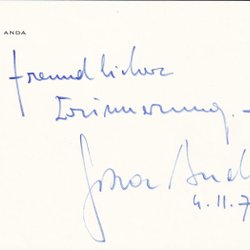 ANDA
freundlicher
Erinnerung. -
Géza And
4.11.7